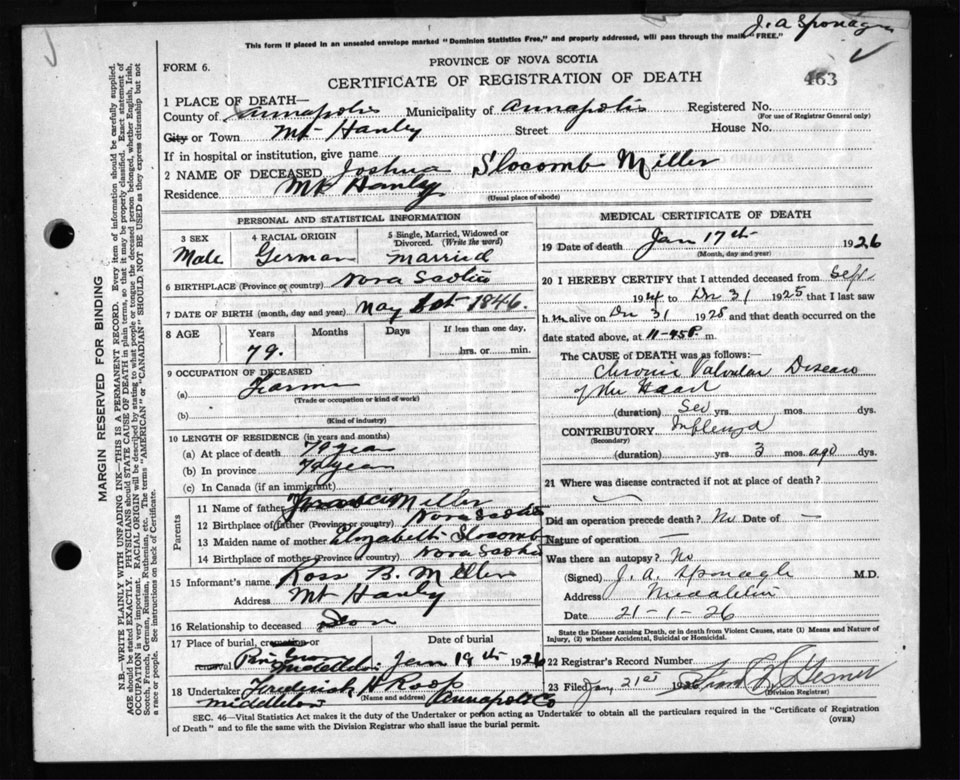 J. A Sponagle
This form if placed in an unsealed envelope marked "Dominion Statistics Free," and properly addressed, will pass through the mails "FREE."
PROVINCE OF NOVA SCOTIA
FORM 6.
CERTIFICATE OF REGISTRATION OF DEATH
463
1 PLACE OF DEATH—
County of Annapolis Municipality of Annapolis Registered No.
(For use of Registrar General only)
City or Town Mt Hanley Street House No.
If in hospital or institution, give name
2 NAME OF DECEASED Joshua Slocomb Miller
Residence Mt Hanly
(Usual place of abode)
PERSONAL AND STATISTICAL INFORMATION
3 SEX 4 RACIAL ORIGIN 5 Single, Married, Widowed or Divorced. (Write the word)
Male German married
6 BIRTHPLACE (Province or country) Nova Scotia
7 DATE OF BIRTH (month, day and year) May 1846.
8 AGE Years Months Days If less than one day,
79. hrs. or minutes.
9 OCCUPATION OF DECEASED
(a) Farmer
(Trade or occupation or kind of work)
(b)
(Kind of industry)
10 LENGTH OF RESIDENCE (in years and months)
(a) At place of death 79 years
(b) In province 79 years
(c) In Canada (if an immigrant)
Parents
11 Name of father Miller
12 Birthplace of father (Province or country) Nova Scotia
13 Maiden name of mother Elizabeth Slocomb
14 Birthplace of mother (Province or country) Nova Scotia
15 Informant's name Ross B. Miller
Address Mt Hanly
16 Relationship to deceased Son
17 Place of burial, cremation or removal Date of burial
Pine Grove Middleton Jan 19th 1926
18 Undertaker Frederick H Roop
(Name and address)
Middleton Annapolis Co
MEDICAL CERTIFICATE OF DEATH
19 Date of death Jan 17th 1926
(Month, day and year)
20 I HEREBY CERTIFY that I attended deceased from Sept
1914 to Dec 31 1925 that I last saw
h im alive on Dec 31 1925 and that death occurred on the
date stated above, at 11-45 P. m.
The CAUSE of DEATH was as follows:
Chronic Valvular Disease
of the Heart
(duration) Sev yrs. mos. dys.
CONTRIBUTORY Influenza
(Secondary)
(duration) yrs. 3 mos. ago dys.
21 Where was disease contracted if not at place of death?
Did an operation precede death? No Date of —
Nature of operation —
Was there an autopsy? No
(Signed) J. A. Sponagle M.D.
Address Middleton
Date 21-1-26
State the Disease causing Death, or in death from Violent Causes, state (1) Means and Nature of Injury, (2) whether Accidental, Suicidal or Homicidal.
22 Registrar's Record Number
23 Filed Jany 21st 1926 Gesner
(Division Registrar)
SEC. 46—Vital Statistics Act makes it the duty of the Undertaker or person acting as Undertaker to obtain all the particulars required in the "Certificate of Registration of Death" and to file the same with the Division Registrar who shall issue the burial permit.
(OVER)
MARGIN RESERVED FOR BINDING
N.B.—WRITE PLAINLY WITH UNFADING INK—THIS IS A PERMANENT RECORD. Every item of information should be carefully supplied.
AGE should be stated EXACTLY. PHYSICIANS should STATE CAUSE OF DEATH in plain terms, so that it may be properly classified. Exact statement of
OCCUPATION is very important. RACIAL ORIGIN will be described by stating to what people or tongue the deceased person belonged, whether English, Irish,
Scotch, French, German, Russian, Ruthenian, etc. The terms "AMERICAN" or "CANADIAN" SHOULD NOT BE USED as they express citizenship but not
a race or people. See instructions on back of Certificate.